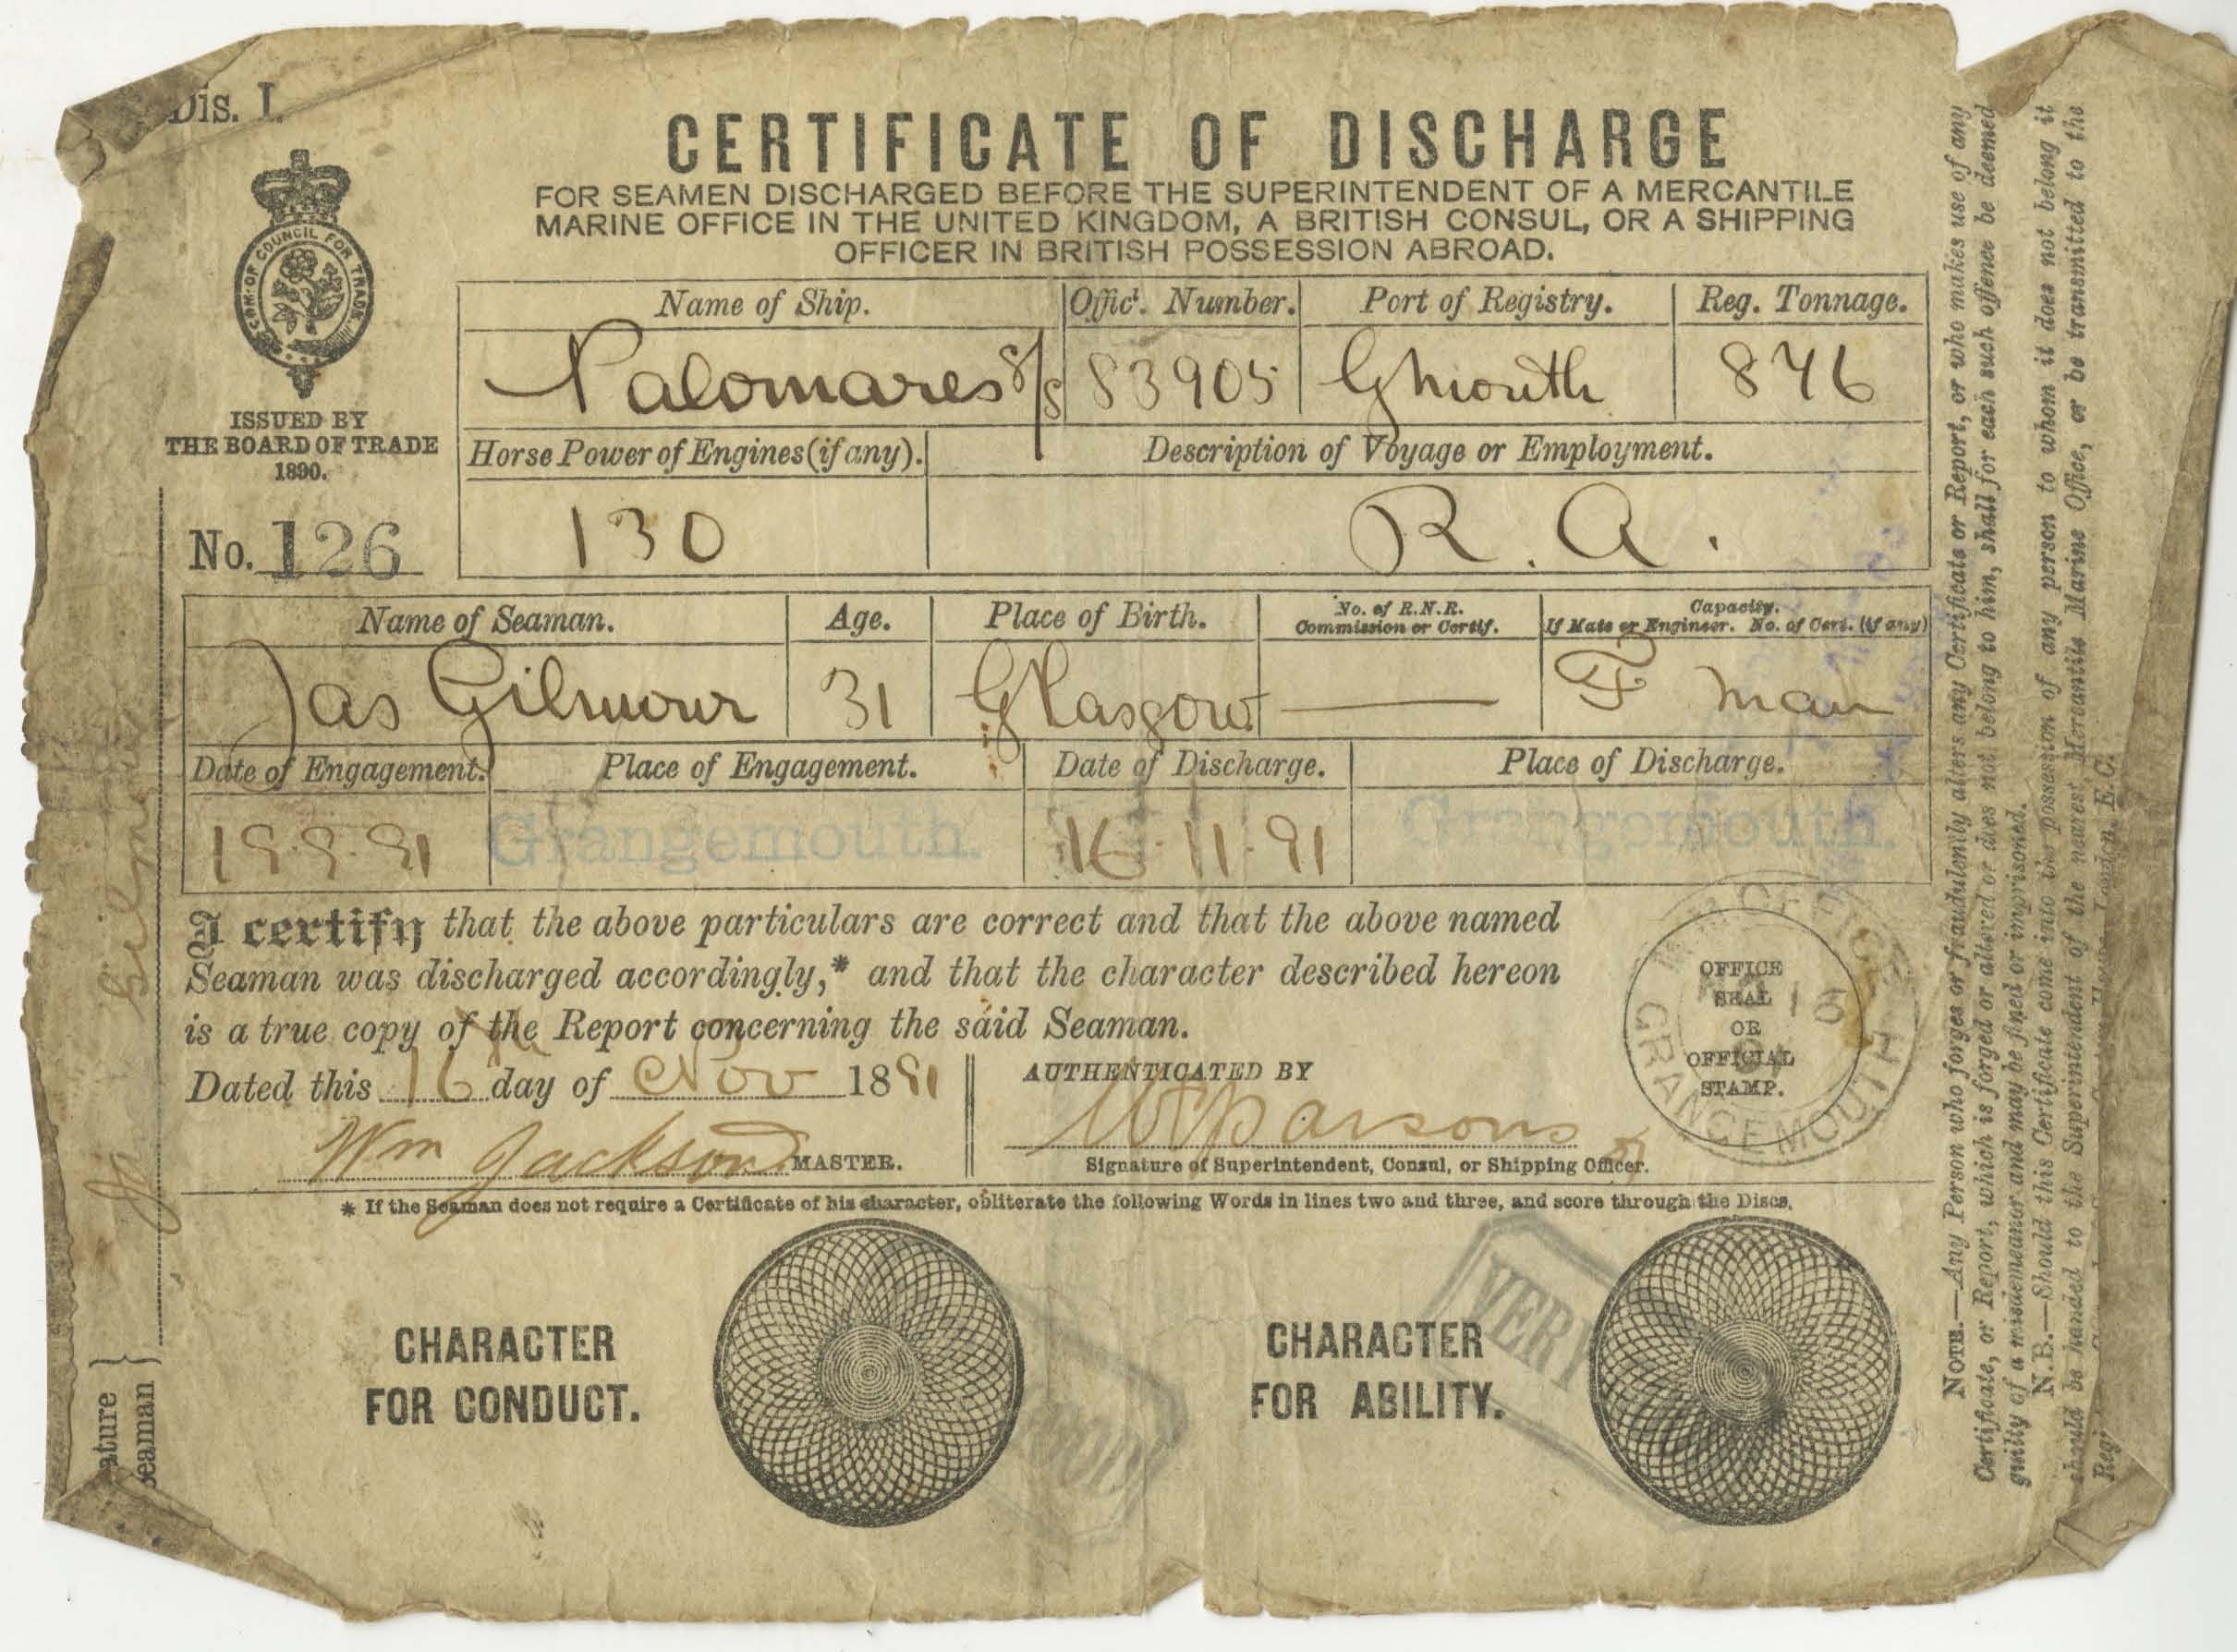 Dis. I.
CERTIFICATE OF DISCHARGE
FOR SEAMEN DISCHARGED BEFORE THE SUPERINTENDENT OF A MERCANTILE
MARINE OFFICE IN THE UNITED KINGDOM, A BRITISH CONSUL, OR A SHIPPING
OFFICER IN BRITISH POSSESSION ABROAD.
COM: OF COUNCIL FOR TRADE
ISSUED BY
THE BOARD OF TRADE
1890.
No. 126
Name of Ship. Offic'. Number. Port of Registry. Reg. Tonnage.
Palomares S/S 83905 Gmouth 876
Horse Power of Engines (if any). Description of Voyage or Employment.
130 R. A.
Name of Seaman. Age. Place of Birth. No. of R.N.R. Commission or Certif. Capacity. If Mate or Engineer. No. of Cert. (if any)
Jas Gilmour 31 Glasgow — F man
Date of Engagement. Place of Engagement. Date of Discharge. Place of Discharge.
19.9.91 Grangemouth. 16.11.91 Grangemouth.
I certify that the above particulars are correct and that the above named
Seaman was discharged accordingly,* and that the character described hereon
is a true copy of the Report concerning the said Seaman.
Dated this 16th day of Nov 1891
AUTHENTICATED BY
Wm Jackson MASTER.
Parsons
Signature of Superintendent, Consul, or Shipping Officer.
OFFICE
SEAL
OR
OFFICIAL
STAMP.
OFFICE
GRANGEMOUTH
* If the Seaman does not require a Certificate of his character, obliterate the following Words in lines two and three, and score through the Discs.
CHARACTER
FOR CONDUCT.
CHARACTER
FOR ABILITY.
VERY
NOTE.—Any Person who forges or fraudulently alters any Certificate or Report, or who makes use of any
Certificate, or Report, which is forged or altered or does not belong to him, shall for each such offence be deemed
guilty of a misdemeanor and may be fined or imprisoned.
N.B.—Should this Certificate come into the possession of any person to whom it does not belong it
should be handed to the Superintendent of the nearest Mercantile Marine Office, or be transmitted to the
London, E.C.
ature
eaman
Gilmour